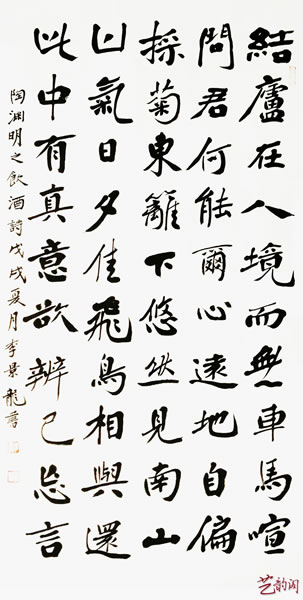 結廬在人境而無車馬喧
問君何能爾心遠地自偏
採菊東籬下悠然見南山
山氣日夕佳飛鳥相與還
此中有真意欲辨已忘言
陶渊明之飲酒詩戊戌夏月李景龍書
艺韵阁